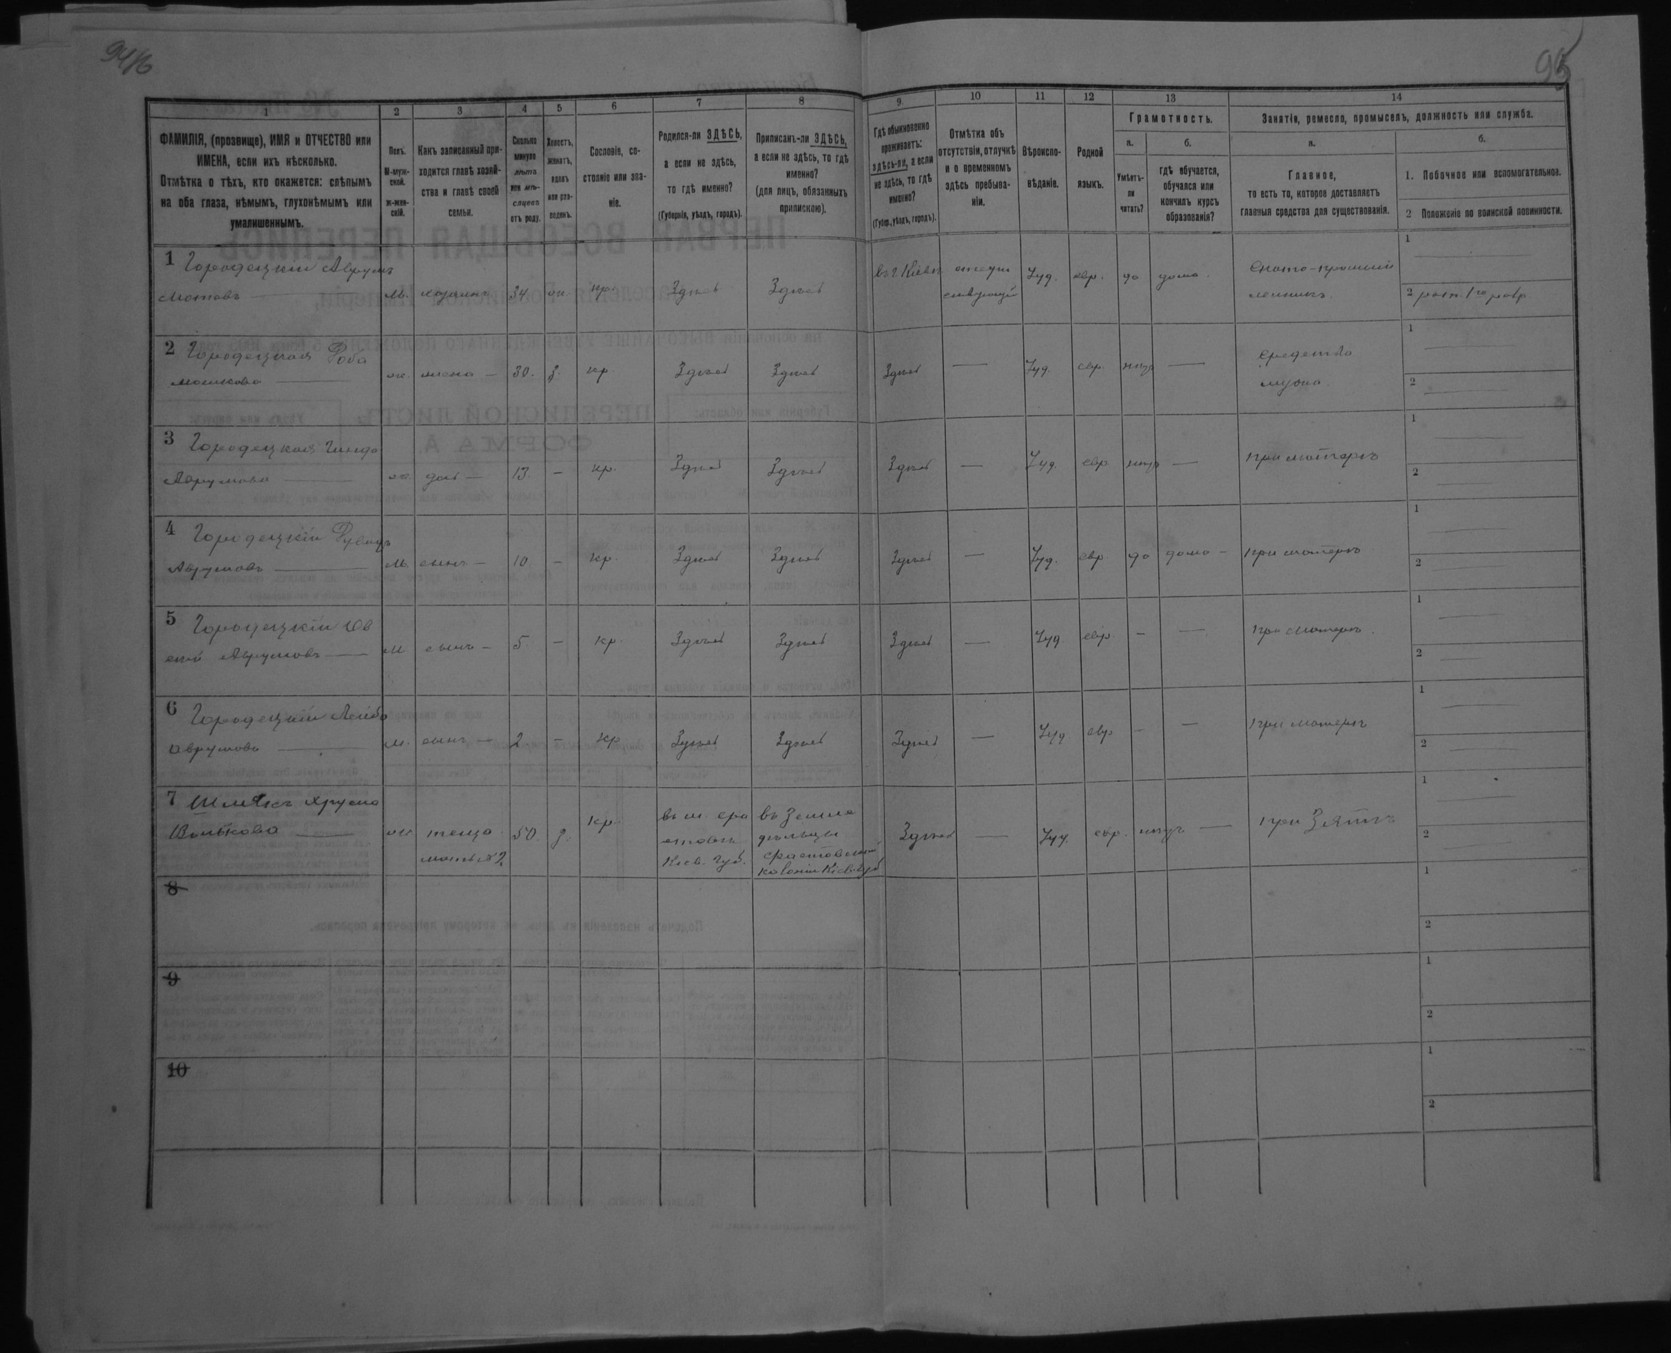 94/б
95
1
2
3
4
5
6
7
8
9
10
11
12
13
14
ФАМИЛІЯ, (прозвище), ИМЯ и ОТЧЕСТВО или
ИМЕНА, если ихъ нѣсколько.
Отмѣтка о тѣхъ, кто окажется: слѣпымъ
на оба глаза, нѣмымъ, глухонѣмымъ или
умалишеннымъ.
Полъ.
М-муж-
ской.
Ж-жен-
скій.
Какъ записанный при-
ходится главѣ хозяй-
ства и главѣ своей
семьи.
Сколько
минуло
лѣтъ
или мѣ-
сяцевъ
отъ роду.
Холостъ,
женатъ,
вдовъ
или раз-
веденъ.
Сословіе, со-
стояніе или зва-
ніе.
Родился-ли ЗДѢСЬ,
а если не здѣсь,
то гдѣ именно?
(Губернія, уѣздъ, городъ).
Приписанъ-ли ЗДѢСЬ,
а если не здѣсь, то гдѣ
именно?
(для лицъ, обязанныхъ
припискою).
Гдѣ обыкновенно
проживаетъ:
здѣсь-ли, а если
не здѣсь, то гдѣ
именно?
(Губер., уѣздъ, городъ).
Отмѣтка объ
отсутствіи, отлучкѣ
и о временномъ
здѣсь пребыва-
ніи.
Вѣроиспо-
вѣданіе.
Родной
языкъ.
Грамотность.
а.
Умѣетъ-
ли
читать?
б.
гдѣ обучается,
обучался или
кончилъ курсъ
образованія?
Занятіе, ремесло, промыселъ, должность или служба.
а.
Главное,
то есть то, которое доставляетъ
главныя средства для существованія.
б.
1. Побочное или вспомогательное.
2 Положеніе по воинской повинности.
1 Городецкій Аврумъ
М. хозяинъ 34 жн. кр. Здѣсь Здѣсь въ г. Кіевѣ Іуд. евр. да дома
1
2
2 Городецкая
Мошкова ж. жена 30. з. кр Здѣсь Здѣсь Здѣсь — Іуд. евр. нѣтъ — Средства
мужа.
1
2
3 Городецкая
Аврумова ж. дочь 13. — кр. Здѣсь Здѣсь Здѣсь — Іуд. евр нѣтъ — при матери
1
2
4 Городецкій Рувинъ
Аврумовъ М. сынъ 10 — кр. Здѣсь Здѣсь Здѣсь — Іуд. евр да дома — при матери
1
2
5 Городецкій Іов
сей Аврумовъ М сынъ 5 — кр. Здѣсь Здѣсь Здѣсь — Іуд евр — — при матери.
1
2
6 Городецкій Лейба
Аврумовъ М. сынъ 2 — кр Здѣсь Здѣсь Здѣсь — Іуд евр. — — при матери
1
2
7
Волькова ж теща 50 кр. Здѣсь — Іуд. евр. нѣтъ — при зятѣ
мать №2
Кіев. губ.
въ земле
дѣльцы
колоніи Кіев. губ
1
2
8
1
2
9
1
2
10
1
2